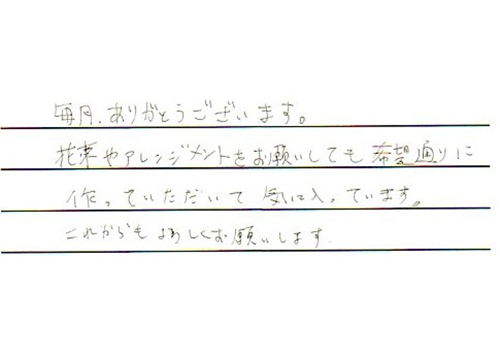 毎月、ありがとうございます。
花束やアレンジメントをお願いしても希望通りに
作っていただいて気に入っています。
これからもよろしくお願いします。